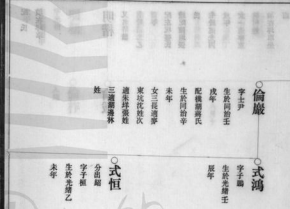 倫嚴
字士尹
生於同治壬
戌年
配橫湖蔣氏
生於同治辛
未年
女三長適麥
東坑沈姓次
適朱垟張姓
三適湖邊林
姓
式鴻
字子
生於光緒壬
辰年
式恒
分出紹
字子恒
生於光緒乙
未年